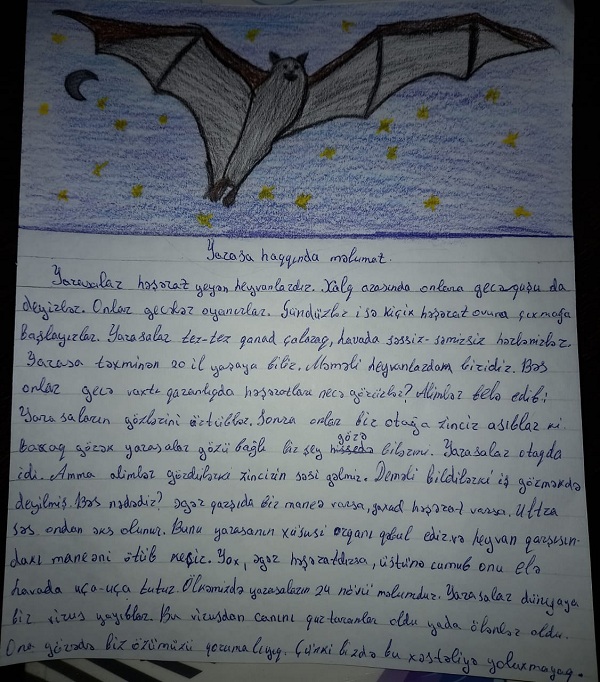 Yarasa haqqında məlumat.
Yarasalar həşərat yeyən heyvanlardır. Xalq arasında onlara gecəquşu da
deyirlər. Onlar gecələr oyanırlar. Gündüzlər isə kiçik həşərat ovuna çıxmağa
başlayırlar. Yarasalar tez-tez qanad çalaraq, havada səssiz-səmirsiz hərlənirlər.
Yarasa təxminən 20 il yaşaya bilir. Məməli heyvanlardan biridir. Bəs
onlar gecə vaxtı qaranlıqda həşəratları necə görürlər? Alimlər belə edib:
Yarasaların gözlərini örtüblər. Sonra onlar bir otağa zincir asıblar ki
baxaq görək yarasalar gözü bağlı bir şey görə bilərmi. Yarasalar otaqda
idi. Amma alimlər gördülərki zincirin səsi gəlmir. Deməli bildilərki iş görməkdə
deyilmiş. Bəs nədədir? əgər qarşıda bir maneə varsa, yaxud həşərat varsa. Ultra
səs ondan əks olunur. Bunu yarasanın xüsusi orqanı qəbul edir.və heyvan qarşısın-
dakı maneəni ötüb keçir. Yox, əgər həşəratdırsa, üstünə cumub onu elə
havada uça-uça tutur. Ölkəmizdə yarasaların 24 növü məlumdur. Yarasalar dünyaya
bir virus yayıblar. Bu virusdan canını qurtaranlar oldu yada ölənlər oldu.
Ona görədə biz özümüzü qorumalıyıq. Çünki bizdə bu xəstəliyə yoluxmayaq.